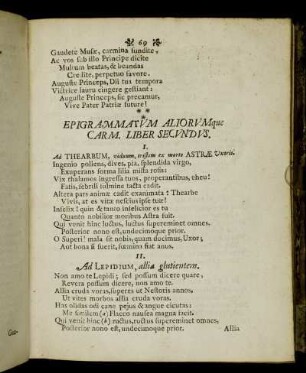 69
Gaudete Musæ, carmina fundite,
Ac vos sub illo Principe dicite
Multum beatas, & beandas
Credite, perpetuo favore.
Auguste Princeps, Dii tua tempora
Victrice lauru cingere gestiant:
Auguste Princeps, sic precamur,
Vive Pater Patriæ future!
* *
EPIGRAMMATUM ALIORUMque
CARM. LIBER SECUNDUS.
I.
Ad THEARBUM, viduum, mæstum ex morte ASTRÆ Uxoris.
Ingenio pollens, dives, pia, splendida virgo,
Exuperans forma lilia mista rosis:
Vix thalamos ingressa tuos, properantibus, eheu!
Fatis, febrili tidmine tacta cadit.
Altera pars animæ cadit exanimata: Thearbe
Vivis, at ex vita nescius ipse tuæ!
Infelix! quin & tanto infelicior es tu
Quanto nobilior moribus Astra fuit.
Qui venit hinc luctus, luctus supereminet omnes,
Posterior nono est, undecimoque prior.
O Superi! mala sit nobis, quam ducimus, Uxor;
Aut bona si fuerit, simus ante
II.
Ad LEPIDIUM, allia glutientem.
Non amo te Lepidi; sed possum dicere quare,
Revera possum dicere, non amo te.
Allia cruda voras, superes ut Nestoris annos,
Ut vites morbos allia cruda voras.
Has olidas odi cane pejus & angue cicutas:
Me similem (a) Flacco nausea magna facit.
Qui venit hinc (b) ructus, ructus supereminet omnes,
Posterior nono est, undecimoque prior.
Allia